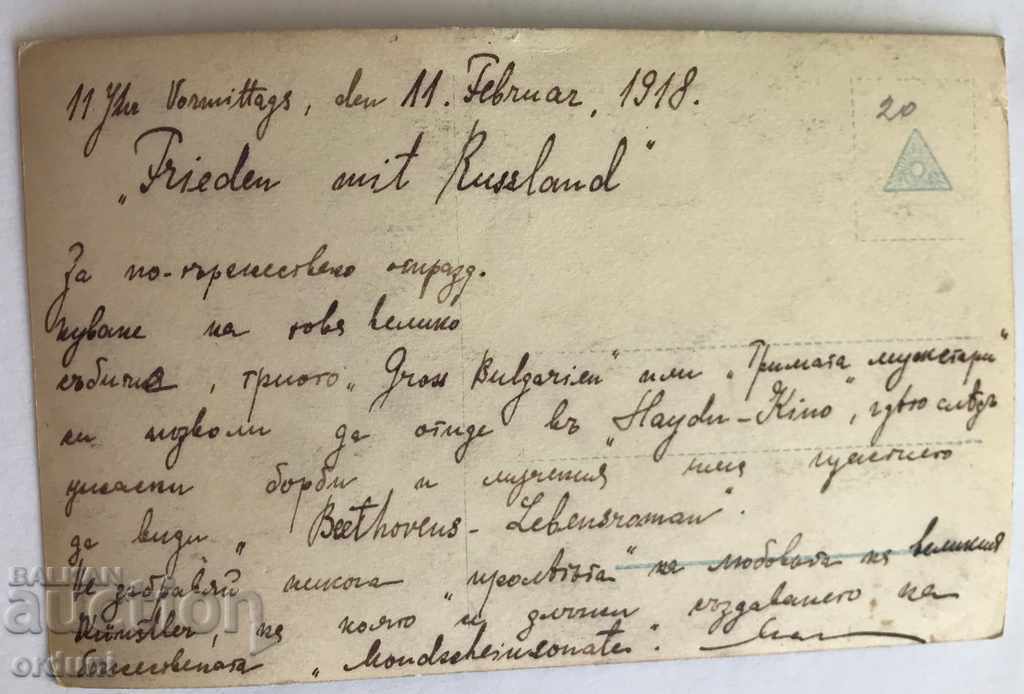 11 Uhr Vormittags, den 11. Februar, 1918.
20
„Frieden mit Russland"
За по-тържествено отпразд-
нуване на това велико
събитие, триото „Gross Bulgarien" или „Тримата мускетари"
си позволи да отиде въ „Haydn-Kino", гдѣто слѣдъ
борби и мучения има щастието
да види „Beethovens-Lebensroman".
Не забравяй никога "пролѣтьта" на любовьта на великия
Künstler, на която и длъжи създаването на
божествената „Mondscheinsonate".
BALKAN
auction
orduni